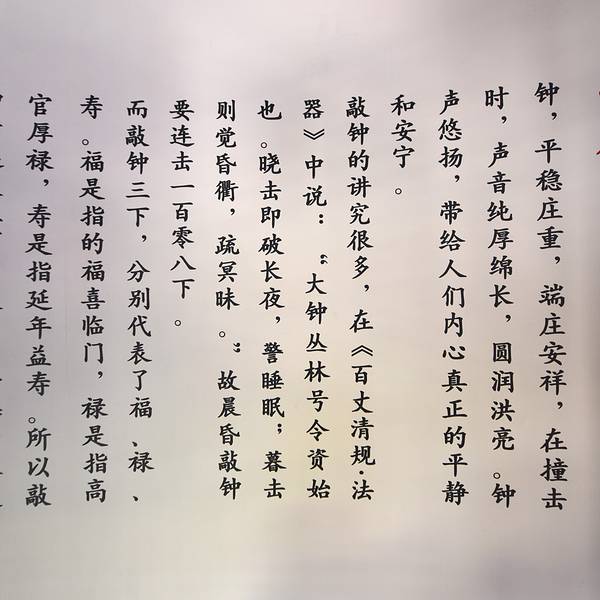 钟，平稳庄重，端庄安祥，在撞击
时，声音纯厚绵长，圆润洪亮。钟
声悠扬，带给人们内心真正的平静
和安宁。
敲钟的讲究很多，在《百丈清规·法
器》中说：“大钟丛林号令资始
也。晓击即破长夜，警睡眠；暮击
则觉昏衢，疏冥昧。”故晨昏敲钟
要连击一百零八下。
而敲钟三下，分别代表了福、禄、
寿。福是指的福喜临门，禄是指高
官厚禄，寿是指延年益寿。所以敲